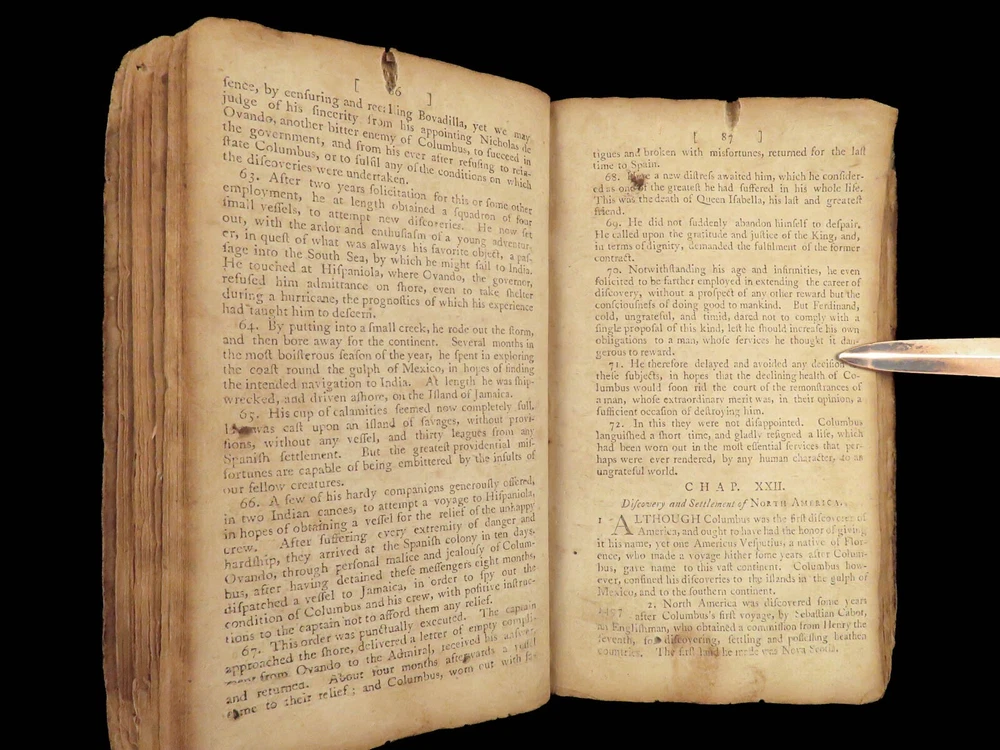 [ 86 ]
ſence, by cenſuring and recalling Bovadilla, yet we may
judge of his ſincerity from his appointing Nicholas de
Ovando, another bitter enemy of Columbus, to ſucceed in
the government, and from his ever after refuſing to rein-
ſtate Columbus, or to fulfil any of the conditions on which
the diſcoveries were undertaken.
63. After two years ſolicitation for this or ſome other
employment, he at length obtained a ſquadron of four
ſmall veſſels, to attempt new diſcoveries. He now ſet
out, with the ardor and enthuſiaſm of a young adventur-
er, in queſt of what was always his favorite object, a paſ-
ſage into the South Sea, by which he might ſail to India.
He touched at Hiſpaniola, where Ovando, the governor,
refuſed him admittance on ſhore, even to take ſhelter
during a hurricane, the prognoſtics of which his experience
had taught him to deſcern.
64. By putting into a ſmall creek, he rode out the ſtorm,
and then bore away for the continent. Several months in
the moſt boiſterous ſeaſon of the year, he ſpent in exploring
the coaſt round the gulph of Mexico, in hopes of finding
the intended navigation to India. At length he was ſhip-
wrecked, and driven aſhore, on the Iſland of Jamaica.
65. His cup of calamities ſeemed now completely full.
He was caſt upon an iſland of ſavages, without provi-
ſions, without any veſſel, and thirty leagues from any
Spaniſh ſettlement. But the greateſt providential miſ-
fortunes are capable of being embittered by the inſults of
our fellow creatures.
66. A few of his hardy companions generouſly offered,
in two Indian canoes, to attempt a voyage to Hiſpaniola,
in hopes of obtaining a veſſel for the relief of the unhappy
crew. After ſuffering every extremity of danger and
hardſhip, they arrived at the Spaniſh colony in ten days.
Ovando, through perſonal malice and jealouſy of Colum-
bus, after having detained theſe meſſengers eight months,
diſpatched a veſſel to Jamaica, in order to ſpy out the
condition of Columbus and his crew, with poſitive inſtruc-
tions to the captain not to afford them any relief.
67. This order was punctually executed. The captain
approached the ſhore, delivered a letter of empty compli-
ment from Ovando to the Admiral, received his anſwer
and returned. About four months afterwards a veſſel
came to their relief; and Columbus, worn out with fa-
[ 87 ]
tigues and broken with misfortunes, returned for the laſt
time to Spain.
68. Here a new diſtreſs awaited him, which he conſider-
ed as one of the greateſt he had ſuffered in his whole life.
This was the death of Queen Iſabella, his laſt and greateſt
friend.
69. He did not ſuddenly abandon himſelf to deſpair.
He called upon the gratitude and juſtice of the King, and,
in terms of dignity, demanded the fulfilment of the former
contract.
70. Notwithſtanding his age and infirmities, he even
ſolicited to be farther employed in extending the career of
diſcovery, without a proſpect of any other reward but the
conſciouſneſs of doing good to mankind. But Ferdinand,
cold, ungrateful, and timid, dared not to comply with a
ſingle propoſal of this kind, leſt he ſhould increaſe his own
obligations to a man, whoſe ſervices he thought it dan-
gerous to reward.
71. He therefore delayed and avoided any deciſion
theſe ſubjects, in hopes that the declining health of Co-
lumbus would ſoon rid the court of the remonſtrances of
a man, whoſe extraordinary merit was, in their opinion, a
ſufficient occaſion of deſtroying him.
72. In this they were not diſappointed. Columbus
languiſhed a ſhort time, and gladly reſigned a life, which
had been worn out in the moſt eſſential ſervices that per-
haps were ever rendered, by any human character, to an
ungrateful world.
CHAP. XXII.
Diſcovery and Settlement of NORTH AMERICA.
1 ALTHOUGH Columbus was the firſt diſcoverer of
America, and ought to have had the honor of giving
it his name, yet one Americus Veſputius, a native of Flor-
ence, who made a voyage hither ſome years after Colum-
bus, gave name to this vaſt continent. Columbus how-
ever, confined his diſcoveries to the iſlands in the gulph of
Mexico, and to the ſouthern continent.
2. North America was diſcovered ſome years
1497 after Columbus's firſt voyage, by Sebaſtian Cabot,
an Engliſhman, who obtained a commiſſion from Henry the
ſeventh, for diſcovering, ſettling and poſſeſſing heathen
countries. The firſt land he made was Nova Scotia.